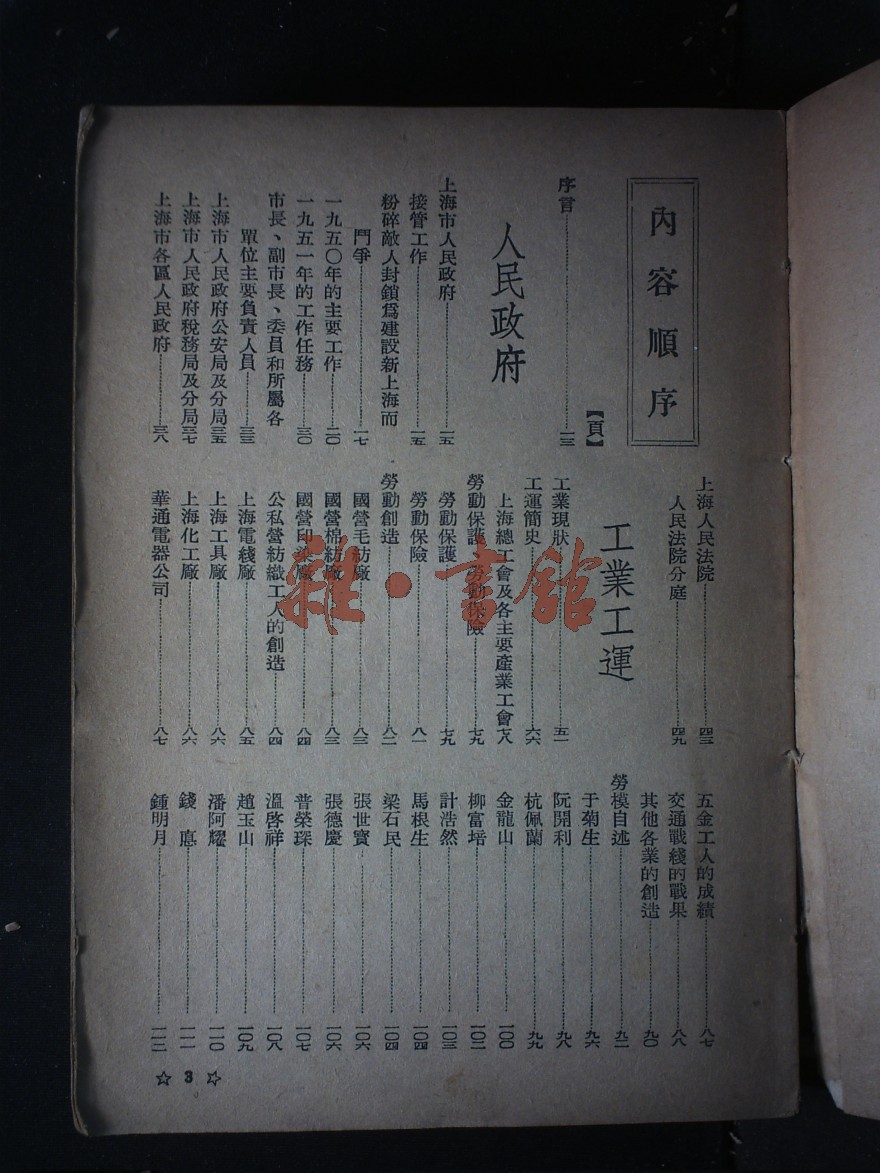 內容順序
【頁】
序言……一三
人民政府
上海市人民政府……一五
接管工作……一五
粉碎敵人封鎖爲建設新上海而
鬥爭……一七
一九五〇年的主要工作……二〇
一九五一年的工作任務……三〇
市長、副市長、委員和所屬各
單位主要負責人員……三三
上海市人民政府公安局及分局三五
上海市人民政府稅務局及分局三七
上海市各區人民政府……三八
上海人民法院……四三
人民法院分庭……四九
工業工運
工業現狀……五一
工運簡史……六六
上海總工會及各主要產業工會七八
勞動保護 勞動保險……七九
勞動保護……七九
勞動保險……八一
勞動創造……八二
國營毛紡廠……八三
國營棉紡廠……八三
國營印染廠……八四
公私營紡織工人的創造……八四
上海電綫廠……八五
上海工具廠……八六
上海化工廠……八六
華通電器公司……八七
五金工人的成績……八七
交通戰綫的戰果……八八
其他各業的創造……九〇
勞模自述……九二
于菊生……九六
阮開利……九八
杭佩蘭……九九
金龍山……一〇〇
柳富培……一〇二
計浩然……一〇三
馬根生……一〇四
梁石民……一〇四
張世寶……一〇六
張德慶……一〇六
普榮琛……一〇七
溫啓祥……一〇八
趙玉山……一〇九
潘阿耀……一一〇
錢 惪……一一一
鍾明月……一一二
☆ 3 ☆
雜·書館